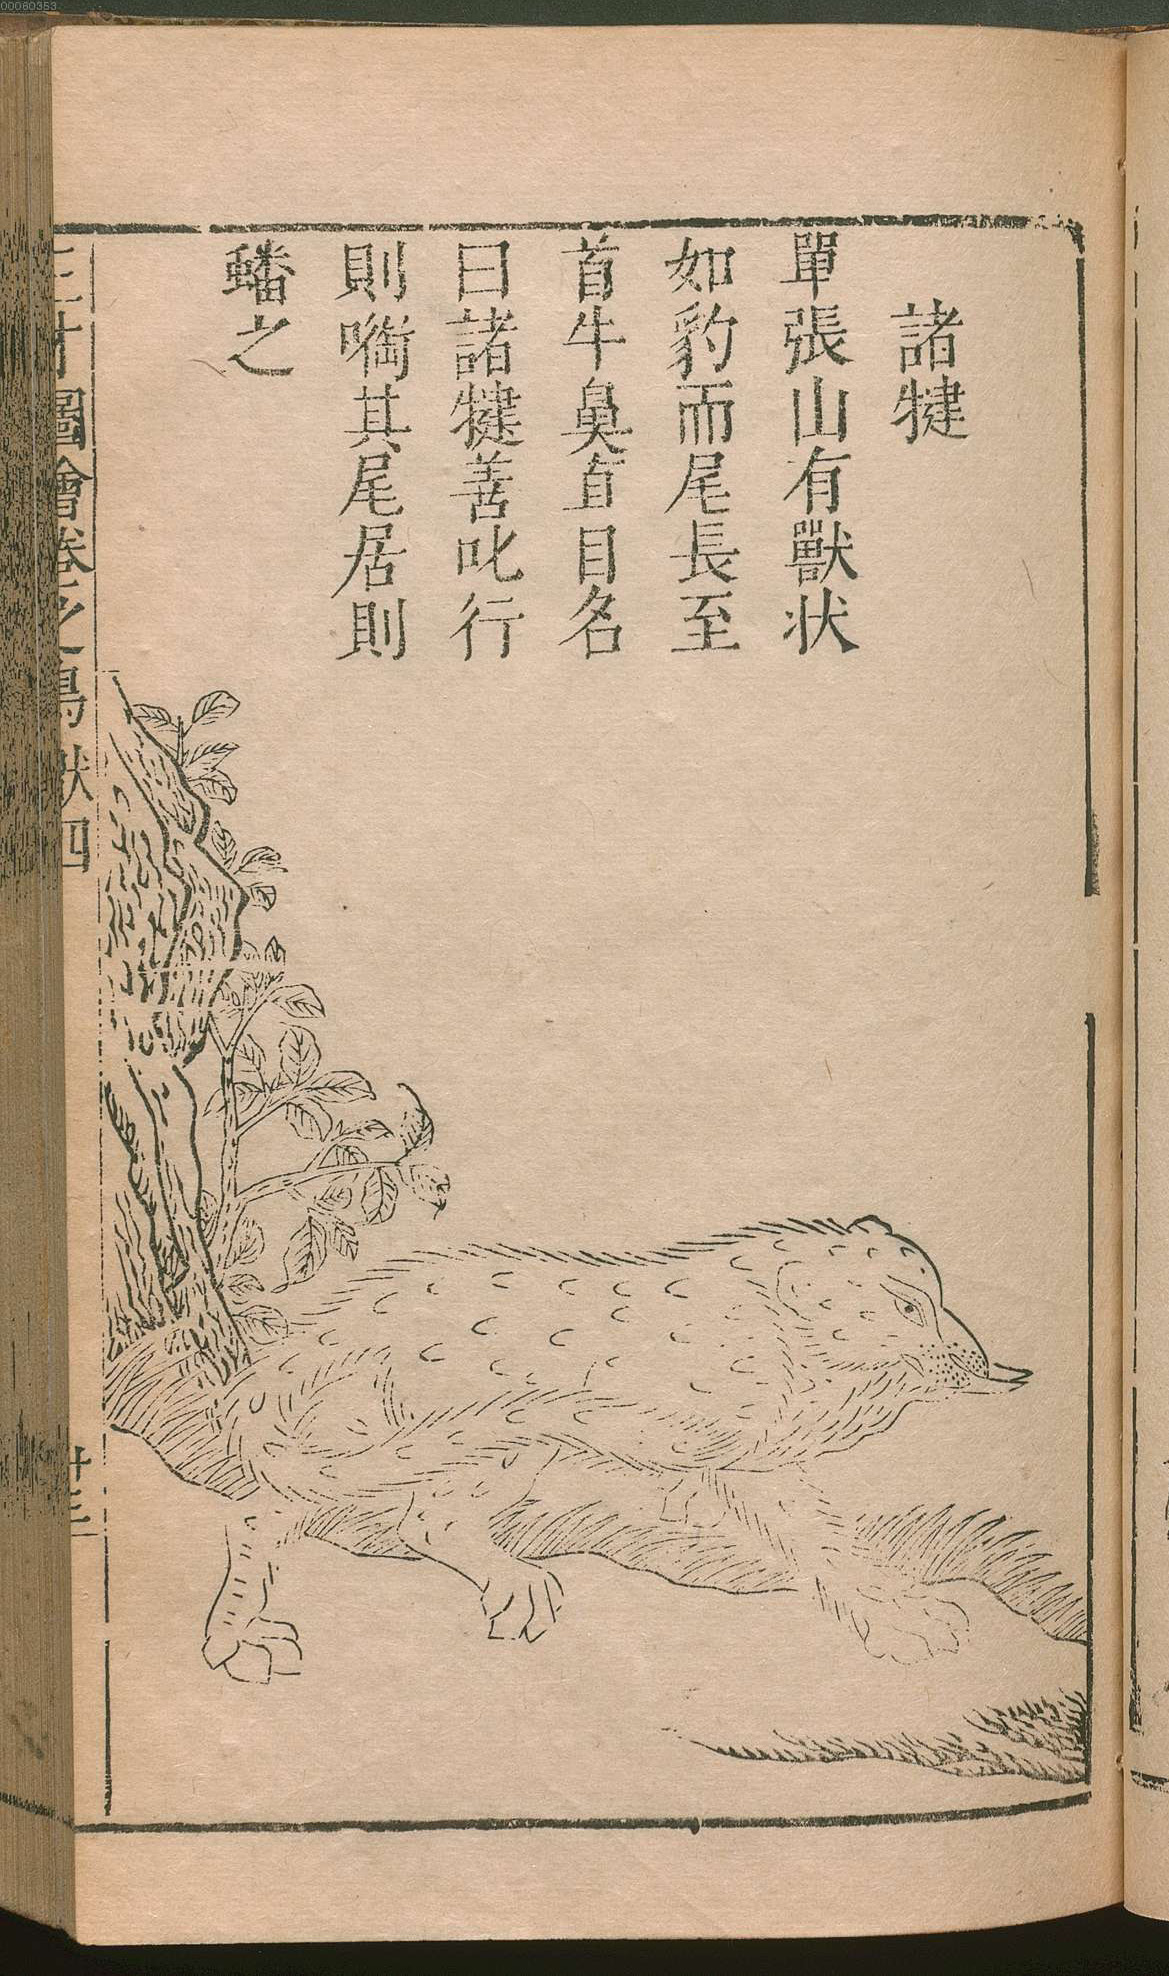 諸犍
單張山有獸状
如豹而尾長至
首牛鼻直目名
曰諸犍善叱行
則㗸其尾居則
蟠之
三才圖會卷之鳥獸四
廿三
00060353